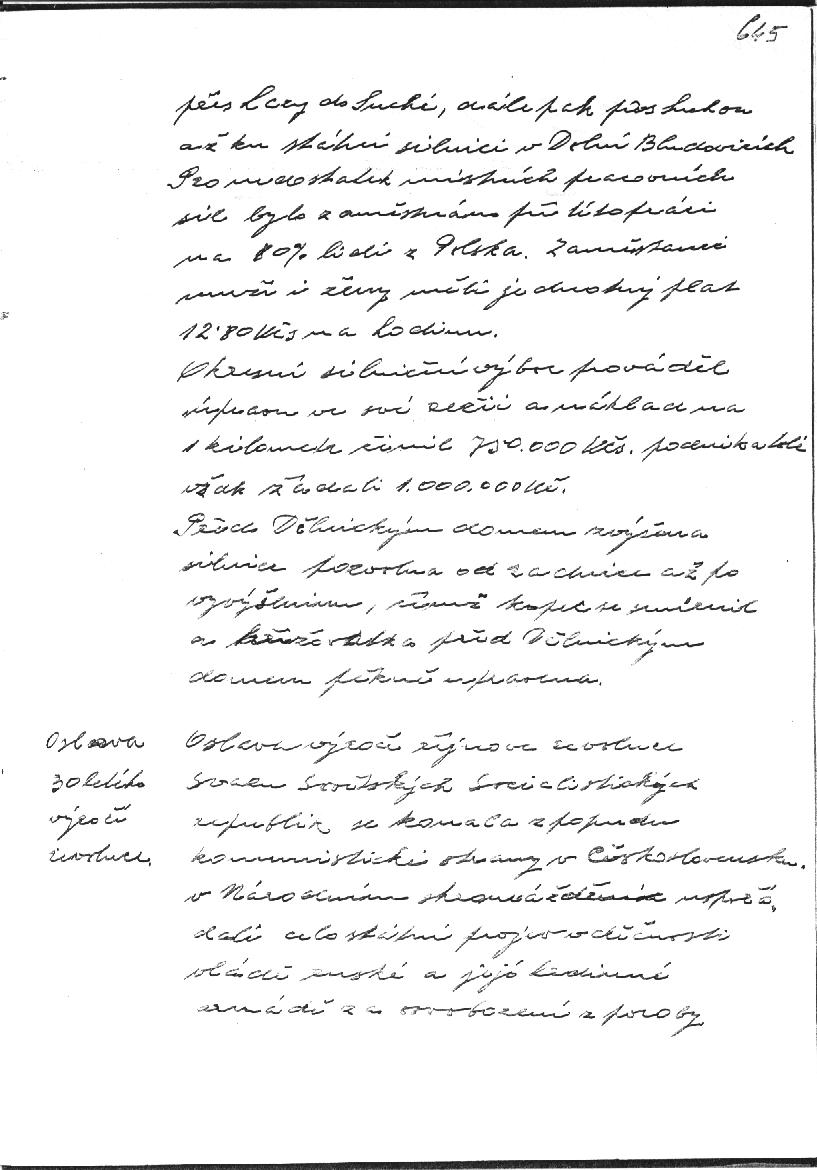 645
přes Lazy do Suché, dále pak přes
až ku státní silnici v Dolní Bludovicích
Pro nedostatek místních pracovních
sil bylo zaměstnáno při této práci
na 80% lidí z Polska. Zaměstnanci
muži i ženy měli jednotný plat
12·80 Kčs na hodinu.
Okresní silniční výbor prováděl
úpravu ve své režii a náklad na
1 kilometr činil 750.000 Kčs. podnikatelé
však žádali 1.000.000 Kč.
Před Dělnickým domem zvýšena
silnice pozvolna od zadnice až po
vyvýšeninu, čímž kopec se zmírnil
a křižovatka před Dělnickým
domem pěkně upravena.
Oslava
30 letého
výročí
revoluce.
Oslava výročí říjnové revoluce
Svazu Sovětských Socialistických
republik se konala z popudu
komunistické strany v Československu.
v Národním shromáždění uspořá-
dali celostátní projev vděčnosti
vládě ruské a její hrdinné
armádě za osvobození z poroby